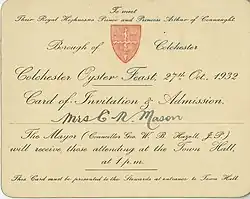 To meet
Their Royal Highnesses Prince and Princess Arthur of Connaught.
Borough of Colchester
Colchester Oyster Feast, 27th Oct. 1932
Card of Invitation & Admission.
Mrs E. N. Mason
The Mayor (Councillor Geo. W. B. Hazell, J.P.)
will receive those attending at the Town Hall,
at 1 p.m.
This Card must be presented to the Stewards at entrance to Town Hall.